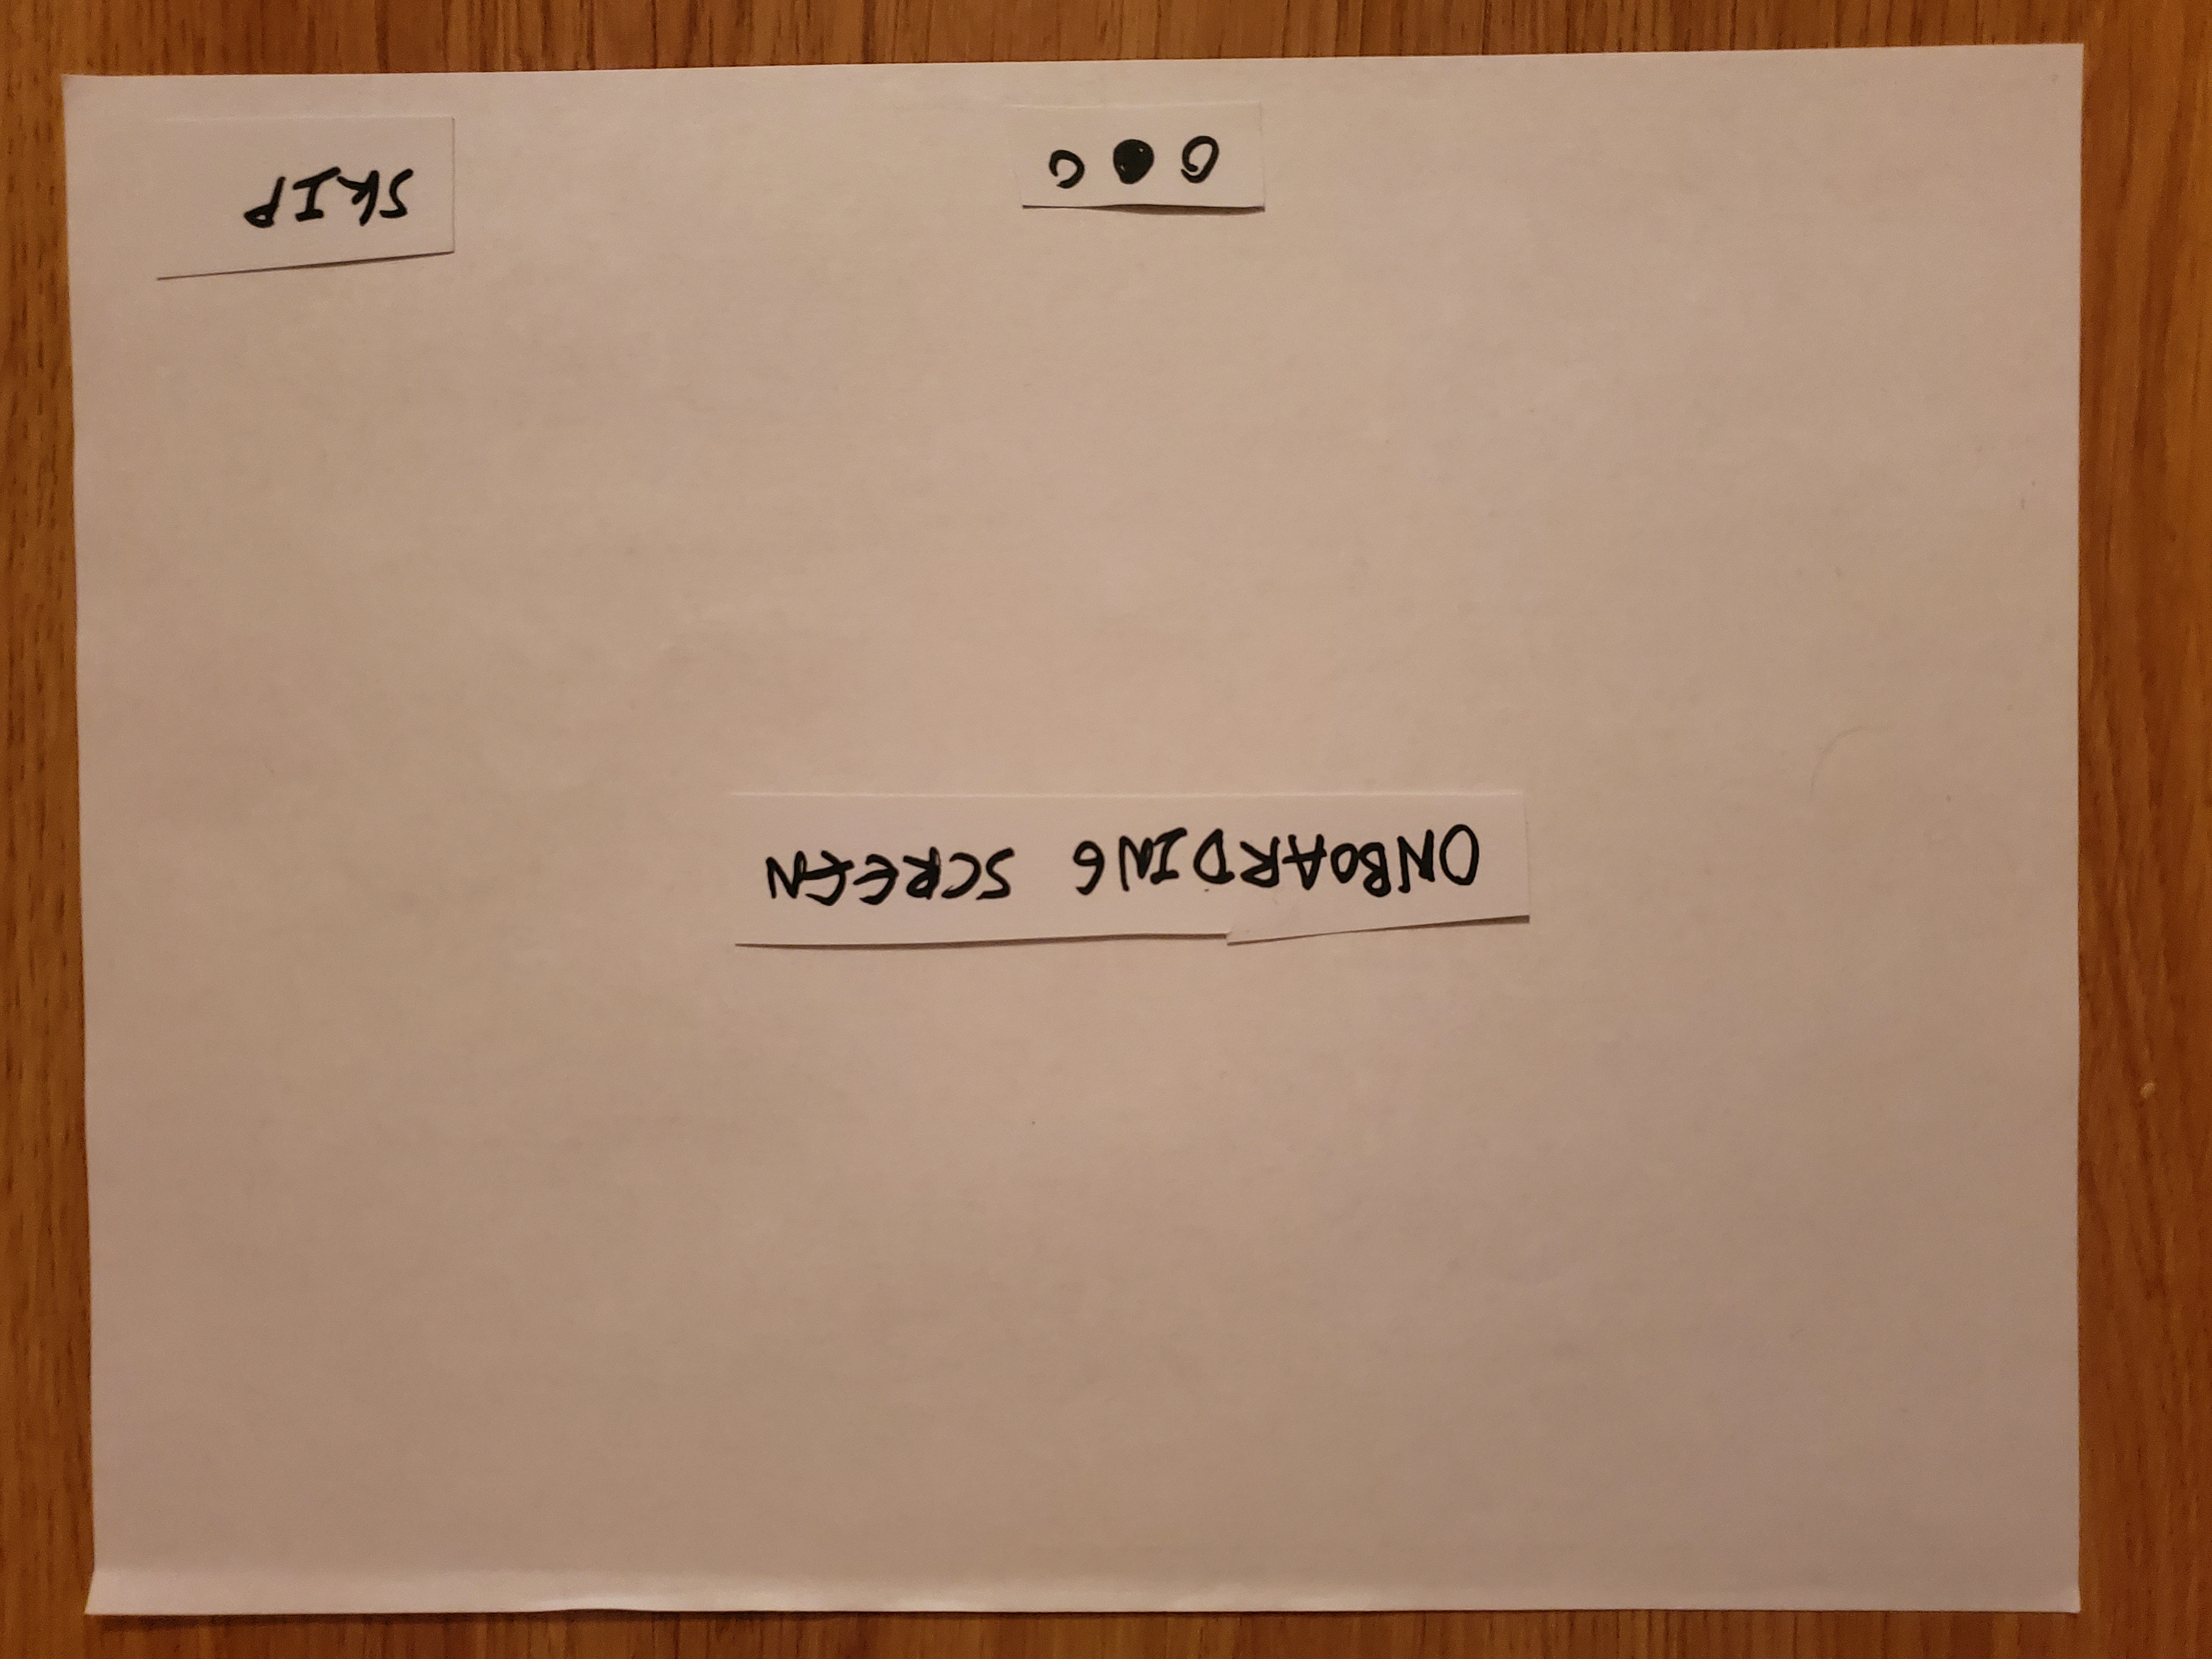 ONBOARDING SCREEN
SKIP